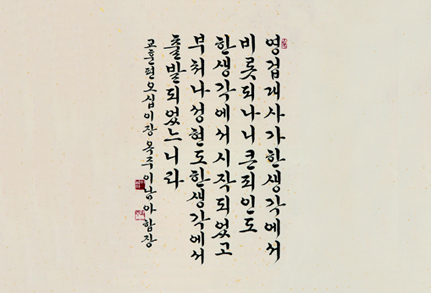 영겁대사가한생각에서
비롯되나니큰죄인도
한생각에서시작되었고
부처나성현도한생각에서
출발되었느니라
교훈편오십이장 옥주이남아함장